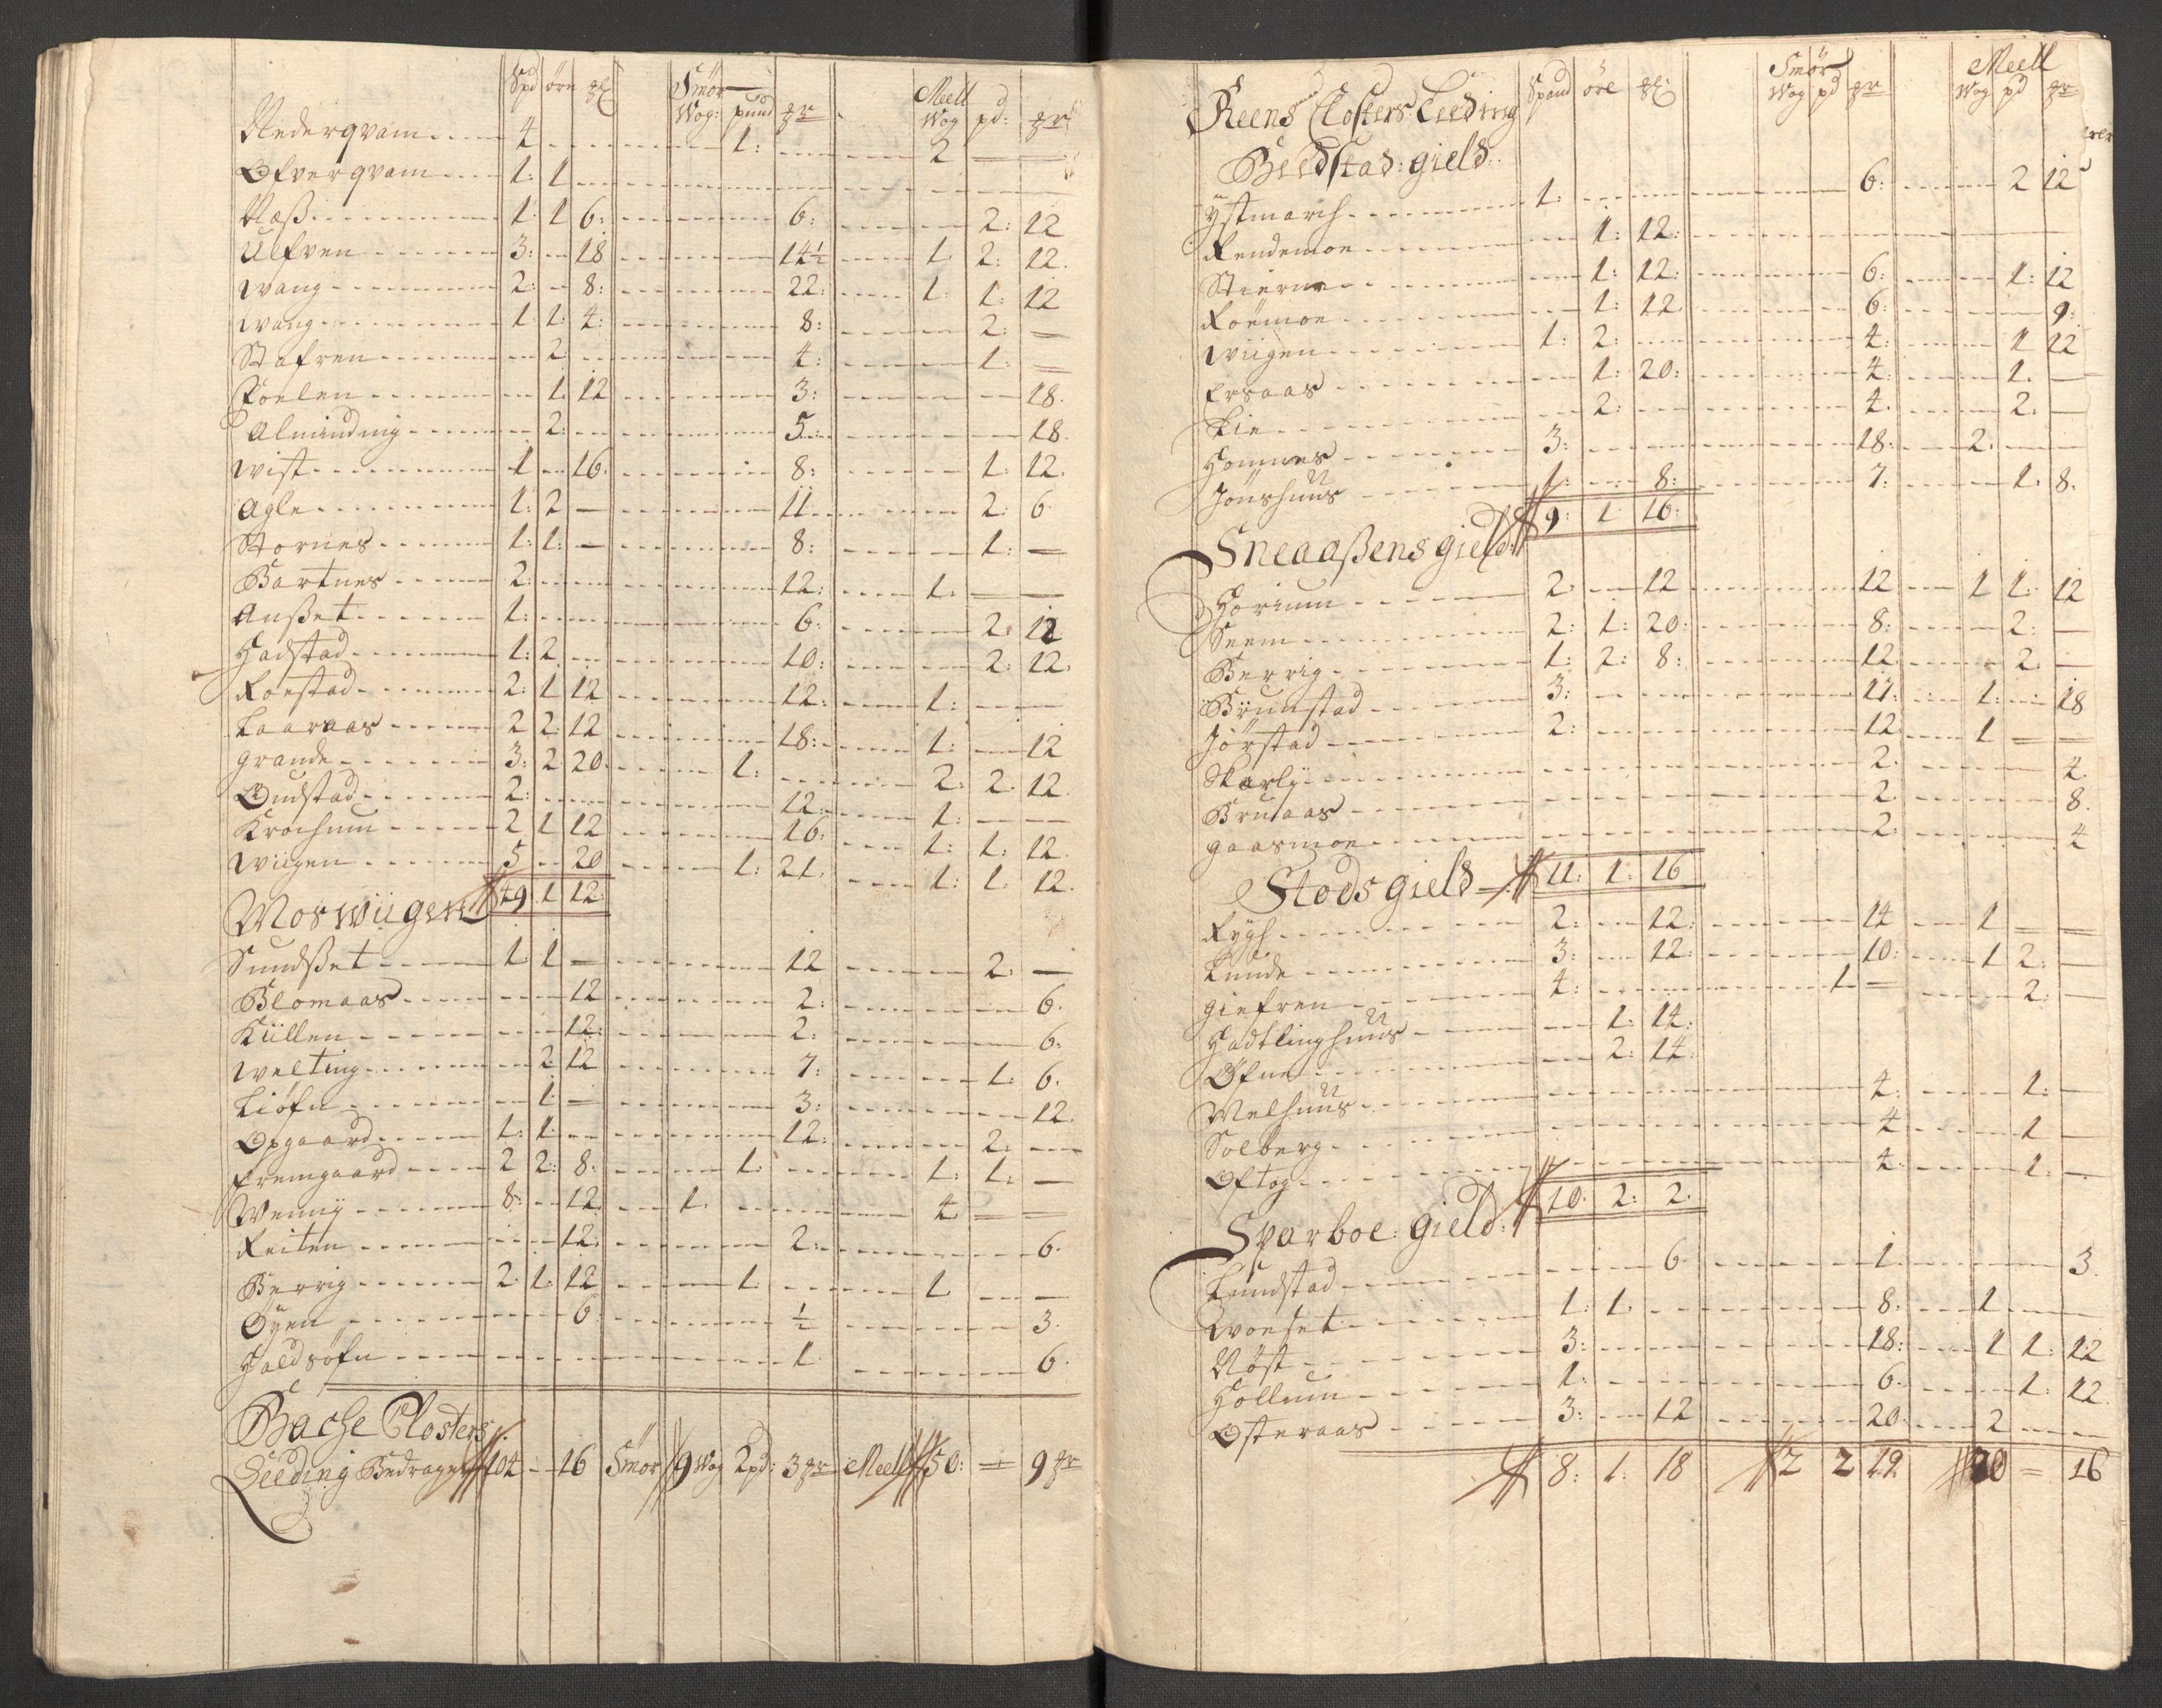 Spd öre Smör Meell
Wog: pund gr Wog pd: gr
Nederqvam 4 1: 2
Ofverqvam 1: 1
Næß 1 1 6: 6: 2: 12
Ulfven 3: 18 14½ 1 2: 12.
Wang 2: 8: 22: 1: 1: 12
Wang 1 1: 4: 8: 2:
Stafren 2 4: 1:
Föelen 1 12 3: 18.
Alminding 2: 5: 18.
Wist 1 16. 8: 1: 12.
Agle 1: 2 11 2: 6
Stornes 1: 1: 8: 1:
Bartnes 2: 12: 1.
Anßet 1: 6: 2: 12
Hadstad 1: 2 10: 2: 12.
Roestad 2: 1 12 12: 1:
Laaraas 2 2: 12 18: 1: 12
Grande 3: 2 20. 1: 2: 2. 12.
Oudstad 2: 12: 1:
Krochum 2 1 12 16: 1: 1: 12.
Wiigen 5 20 1: 21. 1: 1: 12.
Moswiigen 49 1 12:
Sundßet 1 1 12 2:
Blomaas 12 2: 6.
Küllen 12: 2: 6:
Welting 2 12 7: 1: 6.
Liøfn 1: 3: 12.
Opgaard 1: 1: 12: 2:
Fremgaard 2 2: 8. 1: 1: 1:
Wennij 8: 12 1. 4
Reiten 12: 2: 6.
Berrig 2. 1: 12 1. 1
Öyen 6 ½ 3.
Haldsöfn 1 6.
Bache Closters
Leeding Bedrager 104 16 Smör 9 Wog 2 pd: 3 gr Meell 50: 9 gr
Reens Closters Leeding Spand öre Smör Meell
Wog pd gr Wog pd gr
Beedstad: gield:
Ÿstmarch 1: 6: 2 12
Rendemoe 1: 12:
Stierne 1: 12: 6: 1: 12
Roëmoe 1: 12 6: 9:
Wiigen 1: 2: 4: 1 12
Ersaas 1: 20: 4: 1.
Lie 2: 4. 2.
Hommes 3: 18: 2.
Jönshuus 1: 8: 7: 1. 8.
9: 1 16:
Sneaaßens gield:
Horium 2 12 12 1 1: 12
Seem 2: 1: 20: 8: 2:
Berrig 1: 2: 8: 12. 2.
Brunstad 3: 17: 1: 18
Jörstad 2: 12. 1
Skarlj 2. 4.
Bruuaas 2. 8.
Gaasmoe 2. 4
Stods gield 11: 1: 16
Rygh 2: 12: 14 1
Lunde 3: 12: 10: 1 2:
Giefren 4: 1. 2:
Hadtlinghuus 1: 14:
Øfne 2: 14:
Melhuus 4: 1:
Solberg 4 1
Oftog 4: 1:
10. 2: 2.
Sparboe: gield:
Lundstad 6. 1. 3.
Woeset 1: 1. 8: 1
Nöst 3: 18: 1 1: 12
Hollum 1: 6: 1: 12.
Osteraas 3: 12 20. 2
8: 1: 18 2 2 12 20 16